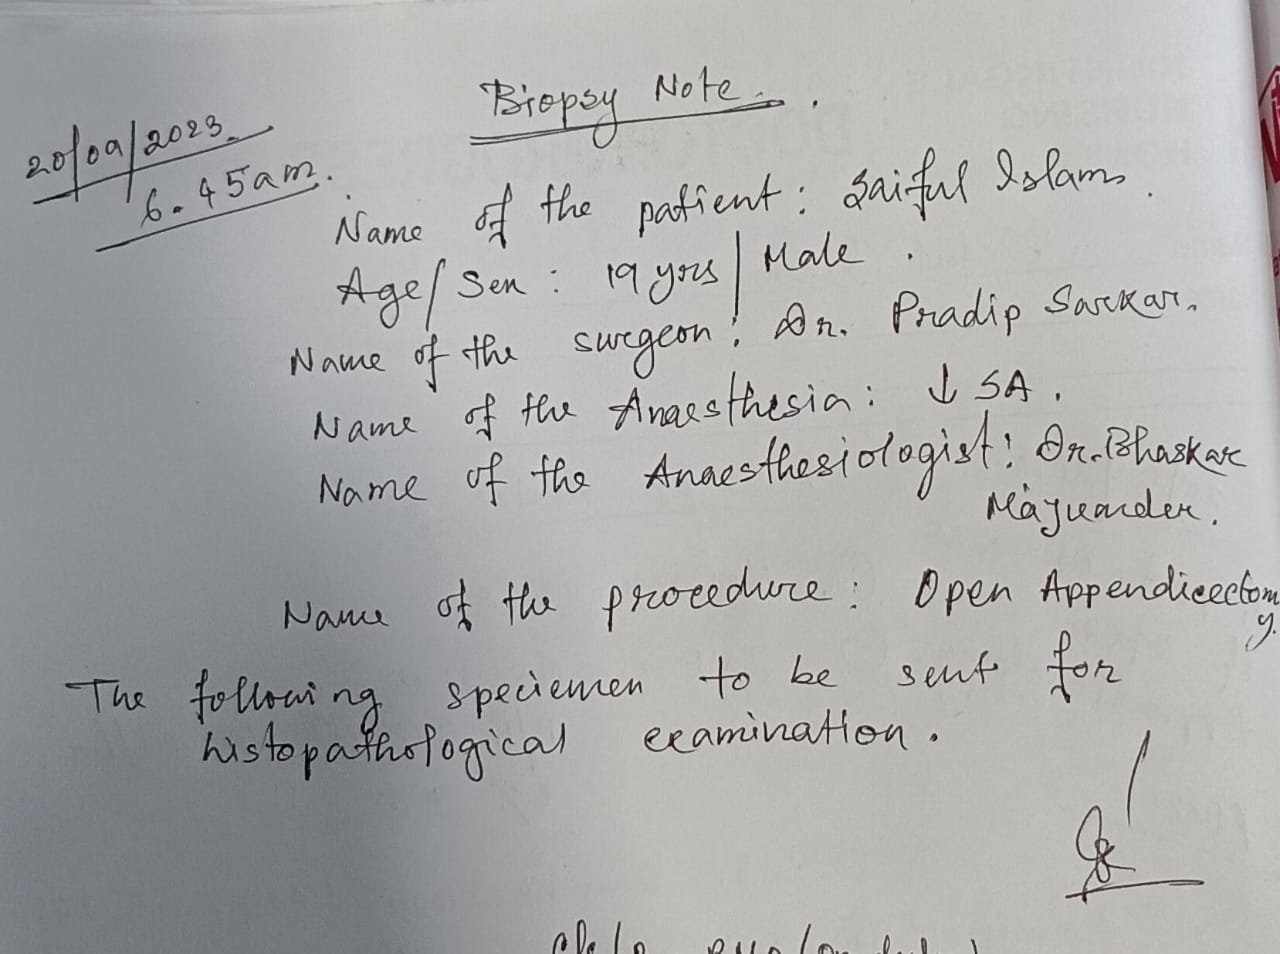 Biopsy Note.
20/09/2023.
6.45am.
Name of the patient: Saiful Islam.
Age/Sex: 19 yrs/Male.
Name of the surgeon: Dr. Pradip Sarkar.
Name of the Anaesthesia: ↓ SA.
Name of the Anaesthesiologist: Dr. Bhaskar
Majumder.
Name of the procedure: Open Appendicectomy.
The following speciemen to be sent for
histopathological examination.